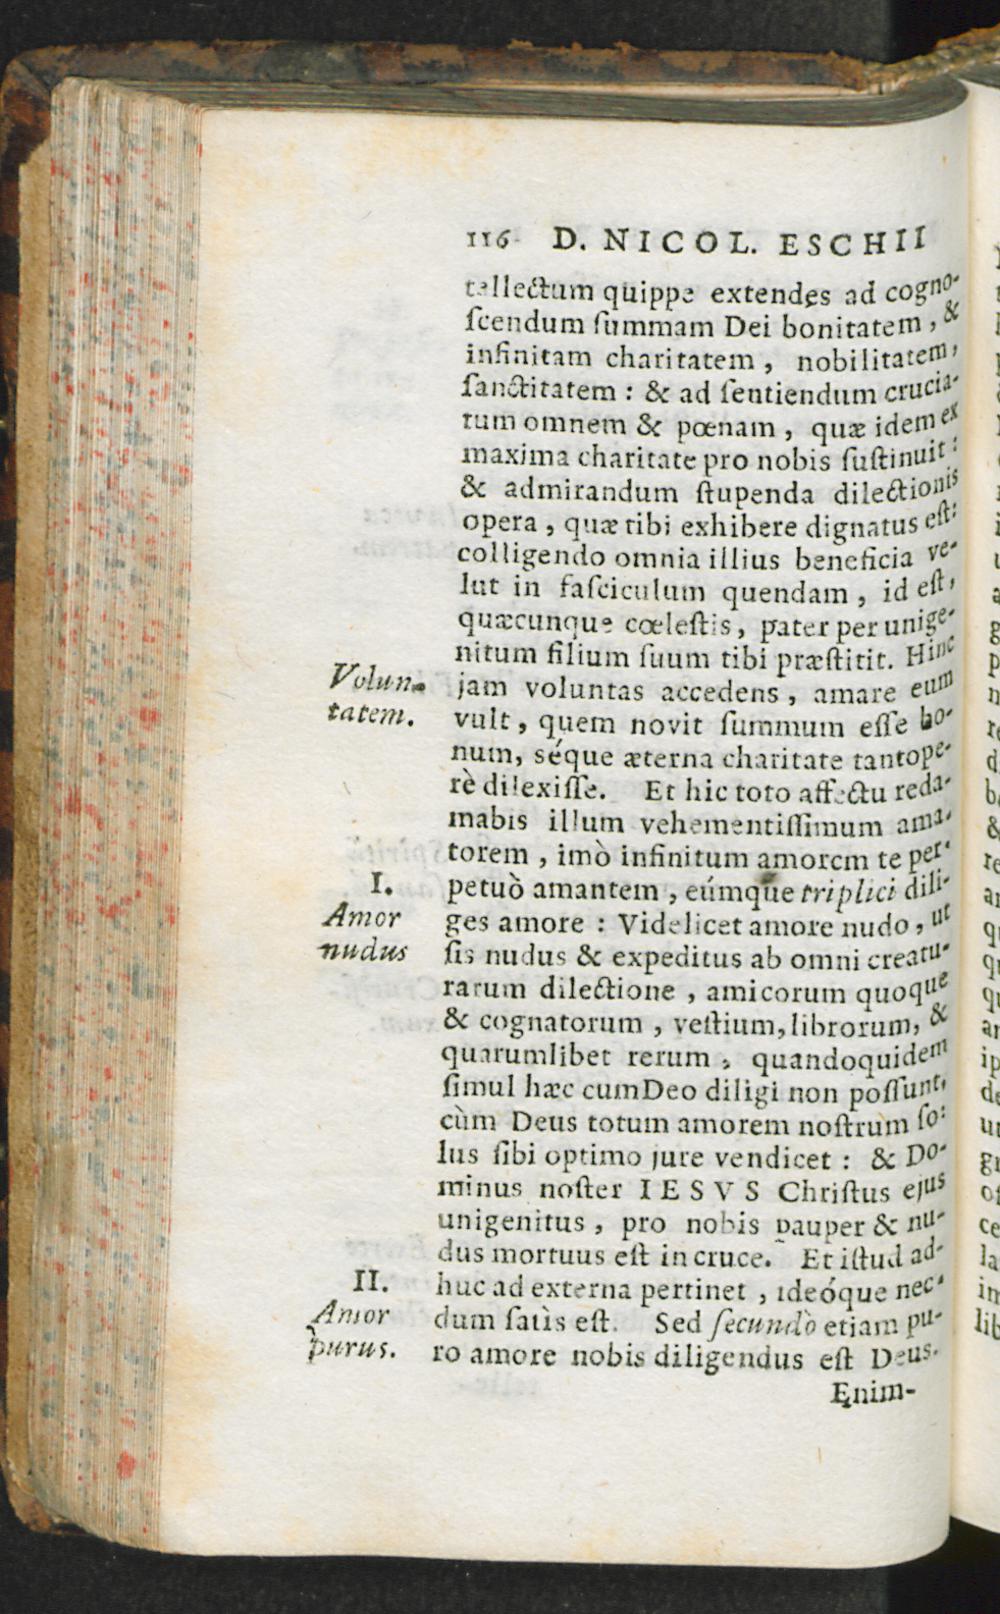 116 D. NICOL. ESCHII
tellectum quippe extendes ad cogno-
ſcendum ſummam Dei bonitatem, &
infinitam charitatem, nobilitatem,
ſanctitatem : & ad ſentiendum crucia-
tum omnem & pœnam, quæ idem ex
maxima charitate pro nobis ſuſtinuit :
& admirandum ſtupenda dilectionis
opera, quæ tibi exhibere dignatus eſt:
colligendo omnia illius beneficia ve-
lut in faſciculum quendam, id eſt,
quæcunque cœleſtis, pater per unige-
nitum filium ſuum tibi præſtitit. Hinc
Volun-
tatem.
jam voluntas accedens, amare eum
vult, quem novit ſummum eſſe bo-
num, séque æterna charitate tantope-
rè dilexiſſe. Et hic toto affectu reda-
mabis illum vehementiſſimum ama-
torem, imò infinitum amorem te per-
I.
Amor
nudus
petuò amantem, eúmque triplici dili-
ges amore : Videlicet amore nudo, ut
ſis nudus & expeditus ab omni creatu-
rarum dilectione, amicorum quoque
& cognatorum, veſtium, librorum, &
quarumlibet rerum, quandoquidem
ſimul hæc cum Deo diligi non poſſunt,
cùm Deus totum amorem noſtrum ſo-
lus ſibi optimo jure vendicet : & Do-
minus noſter IESVS Chriſtus ejus
unigenitus, pro nobis pauper & nu-
dus mortuus eſt in cruce. Et iſtud ad-
II.
Amor
purus.
huc ad externa pertinet, ideóque nec-
dum ſatis eſt. Sed ſecundò etiam pu-
ro amore nobis diligendus eſt Deus.
Enim-